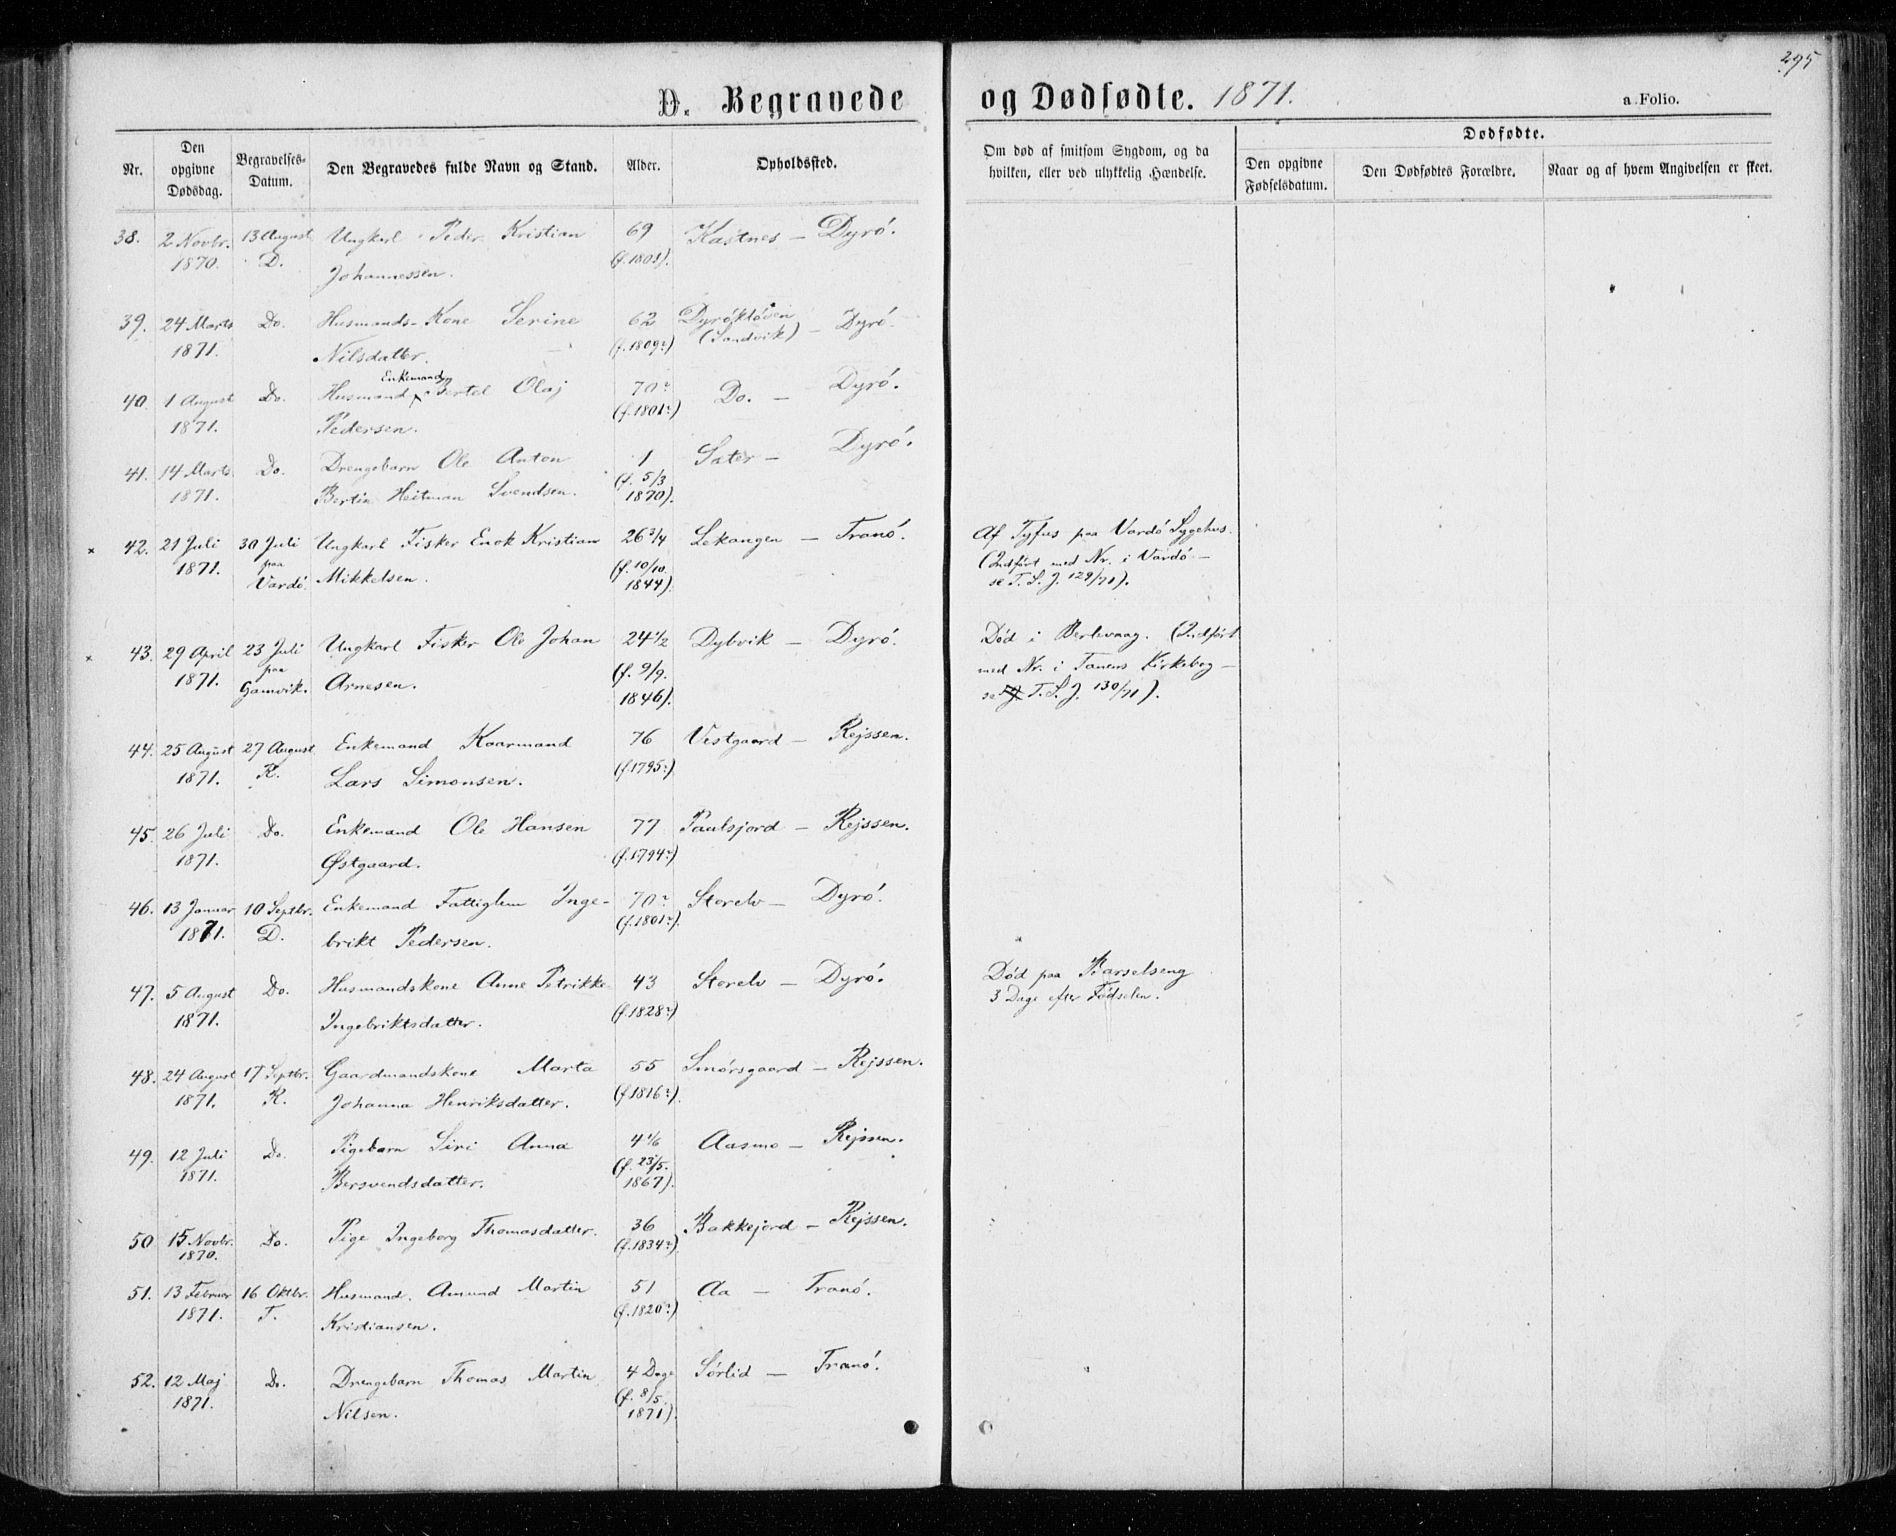 295
D. Begravede og Dødfødte. 1871. a. Folio.
Nr. Den opgivne Dødsdag. Begravelses-Datum. Den Begravedes fulde Navn og Stand. Alder. Opholdssted. Om død af smitsom Sygdom, og da hvilken, eller ved ulykkelig Hændelse. Dødfødte. Den opgivne Fødselsdatum. Den Dødfødtes Forældre. Naar og af hvem Angivelsen er skeet.
38. 2 Novbr. 13 August Ungkarl Peder Kristian 69 Kastnes — Dyrö.
1870. D. Johannessen. (f. 1801).
39. 24 Marts Do. Husmands-Kone Serine 62 Dyröklöven — Dyrö.
1871. Nilsdatter. (f. 1809?) (Sandvik)
Enkemand
40. 1 August Do. Husmand Bertel Olaj 70? Do. — Dyrö.
1871. Pedersen. (f. 1801?)
41. 14 Marts Do. Drengebarn Ole Anton 1 Sæter — Dyrö.
1871. Bertin Heitman Svendsen. (f. 5/3 1870).
× 42. 21 Juli 30 Juli Ungkarl Fisker Enok Kristian 26 3/4 Lekangen — Tranö. Af Tyfus paa Vardö Sygehus.
1871. paa Vardö. Mikkelsen. (f. 10/10. 1844). (Indfört med Nr. i Vardö —
se T. S. J. 129/71).
× 43. 29 April 23 Juli Ungkarl Fisker Ole Johan 24 1/2 Dybvik — Dyrö. Död i Berlevaag. (Indfört
1871. paa Gamvik. Arnesen. (f. 9/9. 1846). med Nr. i Tanens Kirkebog —
se T. S. J. 130/71).
44. 25 August 27 August Enkemand Kaarmand 76 Vestgaard — Rejssen.
1871. R. Lars Simonsen. (f. 1795?)
45. 26 Juli Do. Enkemand Ole Hansen 77 Paulsjord — Rejssen.
1871. Østgaard. (f. 1794?)
46. 13 Januar 10 Septbr. Enkemand Fattiglem Inge- 70? Storelv — Dyrö.
1871. D. brikt Pedersen. (f. 1801?).
47. 5 August Do. Husmandskone Anne Petrikke 43 Storelv — Dyrö. Död paa Barselseng
1871. Ingebriktsdatter. (f. 1828?) 3 Dage efter Födselen.
48. 24 August 17 Septbr. Gaardmandskone Marta 55 Smörsgaard — Rejssen.
1871. R. Johanna Henriksdatter. (f. 1816?).
49. 12 Juli Do. Pigebarn Siri Anna 4 1/6 Aasmo — Rejssen.
1871. Bersvendsdatter. (f. 23/5. 1867).
50 15 Novbr. Do. Pige Ingeborg Thomasdatter. 36 Bakkejord — Rejssen.
1870. (f. 1834?)
51. 13 Februar 16 Oktbr. Husmand. Amund Martin 51 Aa — Tranö.
1871. T. Kristiansen. (f. 1820?)
52. 12 Maj Do. Drengebarn Thomas Martin 4 Dage Sörlid — Tranö.
1871. Nilsen. (f. 8/5. 1871).